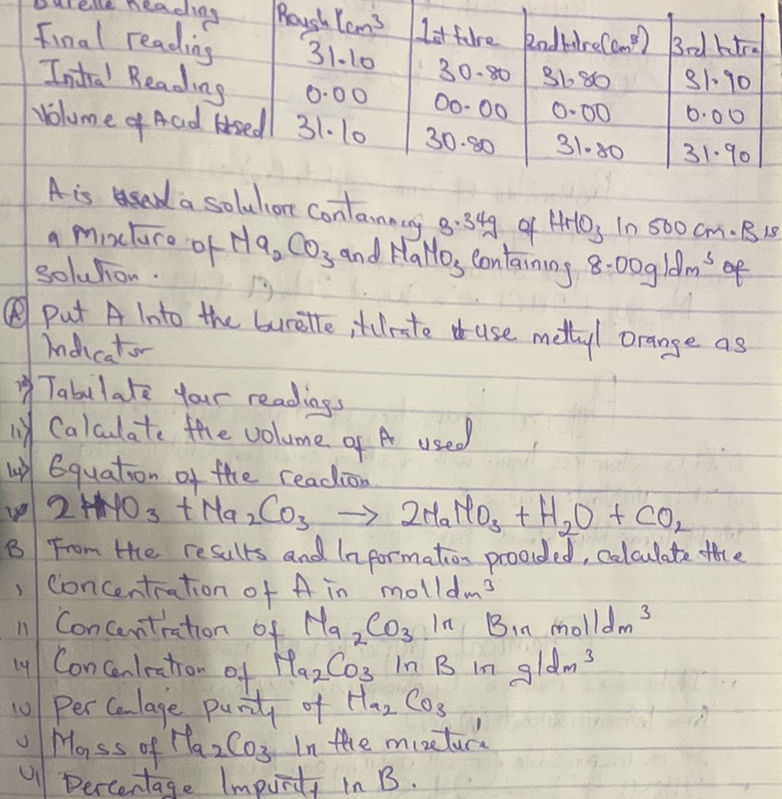 Burette Reading | Rough (cm³ | 1st titre | 2nd titre (cm³) | 3rd titre
Final reading | 31.10 | 30.80 | 31.80 | 31.90
Initial Reading | 0.00 | 00.00 | 0.00 | 0.00
Volume of Acid used | 31.10 | 30.80 | 31.80 | 31.90
A is a solution containing 3.34g of HNO₃ in 500 cm. B is
a mixture of Na₂CO₃ and NaNO₃ containing 8.00g/dm³ of
solution.
A Put A into the burette, titrate use methyl orange as
indicator
i) Tabulate your readings
ii) Calculate the volume of A used
iii) Equation of the reaction
2HNO₃ + Na₂CO₃ → 2NaNO₃ + H₂O + CO₂
B From the results and information provided, calculate the
i Concentration of A in mol/dm³
ii Concentration of Na₂CO₃ in B in mol/dm³
iii Concentration of Na₂CO₃ in B in g/dm³
iv Percentage purity of Na₂CO₃
v Mass of Na₂CO₃ in the mixture
vi Percentage Impurity in B.